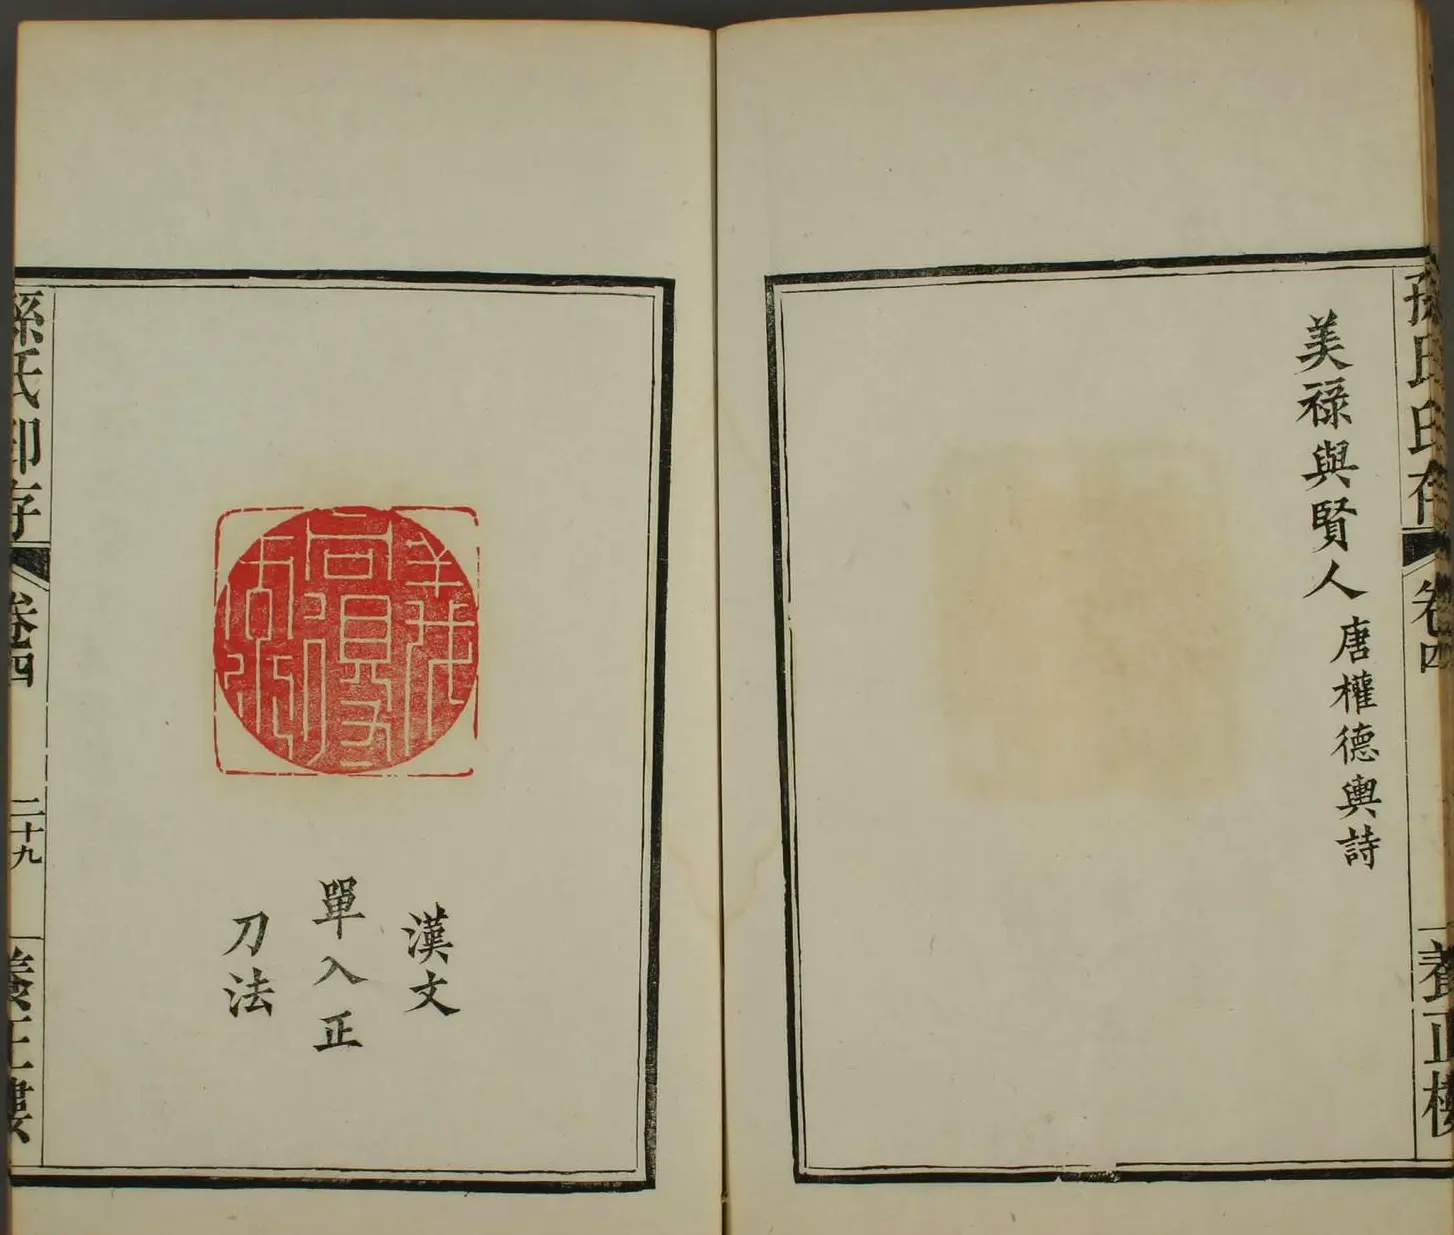 孫氏印存
卷四
養正樓
美祿與賢人 唐權德輿詩
漢文
單入正
刀法
孫氏印存
卷四
二十九
養正樓